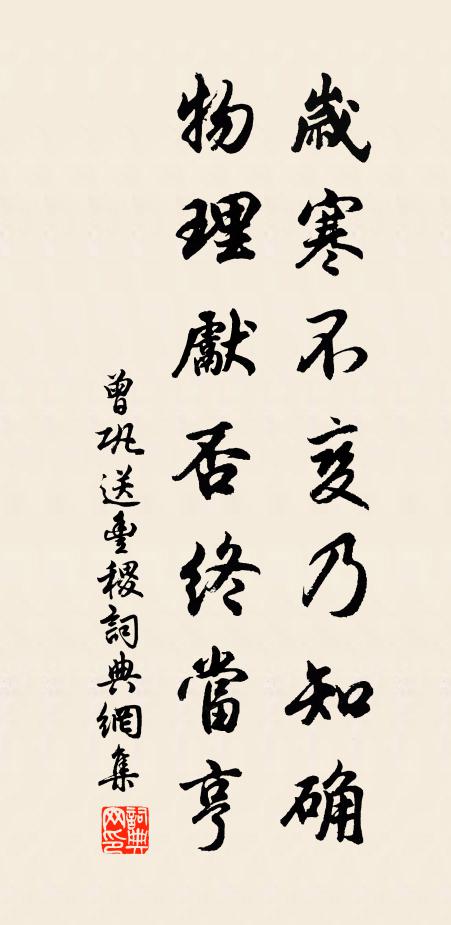 歲寒不變乃知确
物理獻否終當亨
曾巩送豐稷詞典網集
詞典网印